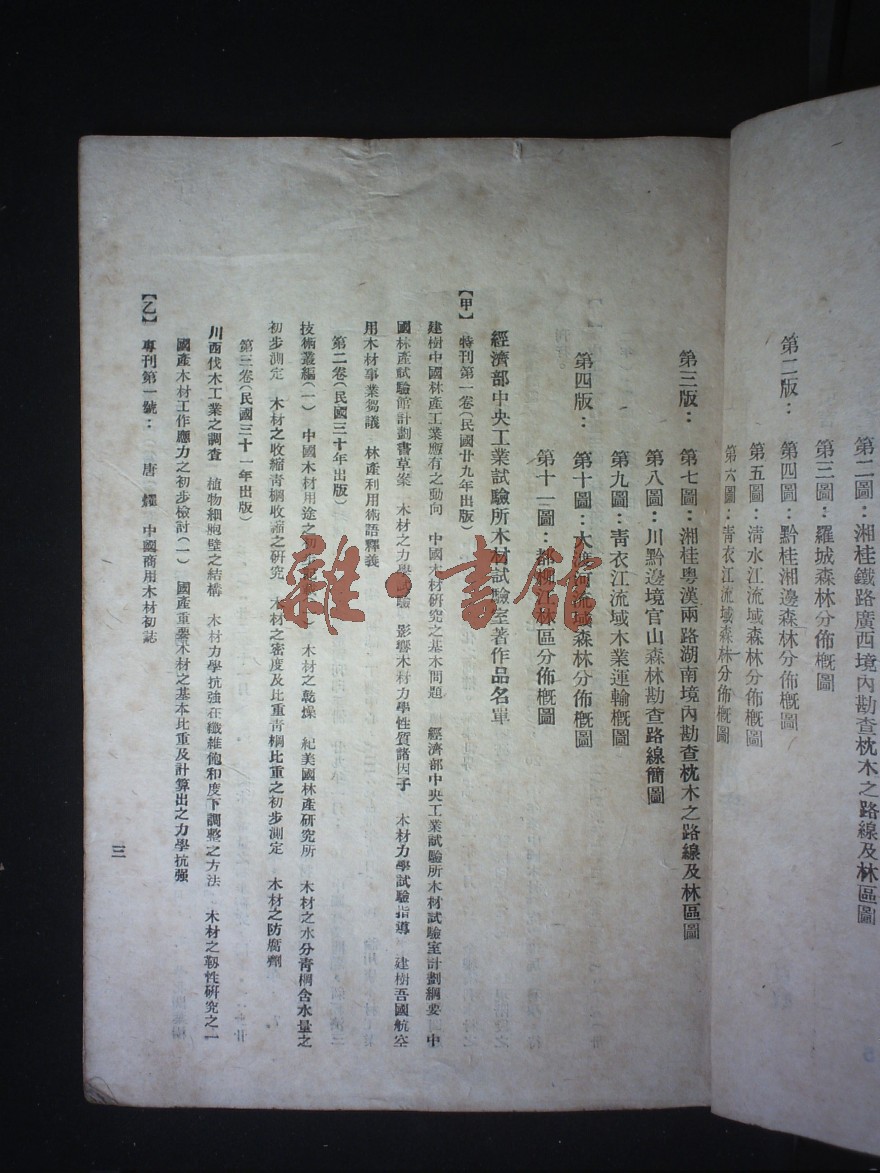 第二圖：湘桂鐵路廣西境內勘查枕木之路線及林區圖
第三圖：羅城森林分佈概圖
第二版：　第四圖：黔桂湘邊森林分佈概圖
第五圖：清水江流域森林分佈概圖
第六圖：青衣江流域森林分佈概圖
第三版：　第七圖：湘桂粵漢兩路湖南境內勘查枕木之路線及林區圖
第八圖：川黔邊境官山森林勘查路線簡圖
第九圖：青衣江流域木業運輸概圖
第四版：　第十圖：大渡河流域森林分佈概圖
第十一圖：都柳江林區分佈概圖
經濟部中央工業試驗所木材試驗室著作品名單
【甲】　特刊第一卷（民國廿九年出版）
建樹中國林產工業應有之動向　中國木材研究之基本問題　經濟部中央工業試驗所木材試驗室計劃綱要　中
國林產試驗館計劃書草案　木材之力學試驗　影響木材力學性質諸因子　木材力學試驗指導　建樹吾國航空
用木材事業芻議　林產利用術語釋義
第二卷（民國三十年出版）
技術叢編（一）　中國木材用途之初步　木材之乾燥　紀美國林產研究所　木材之水分青棡含水量之
初步測定　木材之收縮青棡收縮之研究　木材之密度及比重青棡比重之初步測定　木材之防腐劑
第三卷（民國三十一年出版）
川西伐木工業之調查　植物細胞壁之結構　木材力學抗強在纖維飽和度下調整之方法　木材之韌性研究之一
國產木材工作應力之初步檢討（一）　國產重要木材之基本比重及計算出之力學抗强
【乙】　專刊第一號：　唐　燿　中國商用木材初誌
三
雜·書館